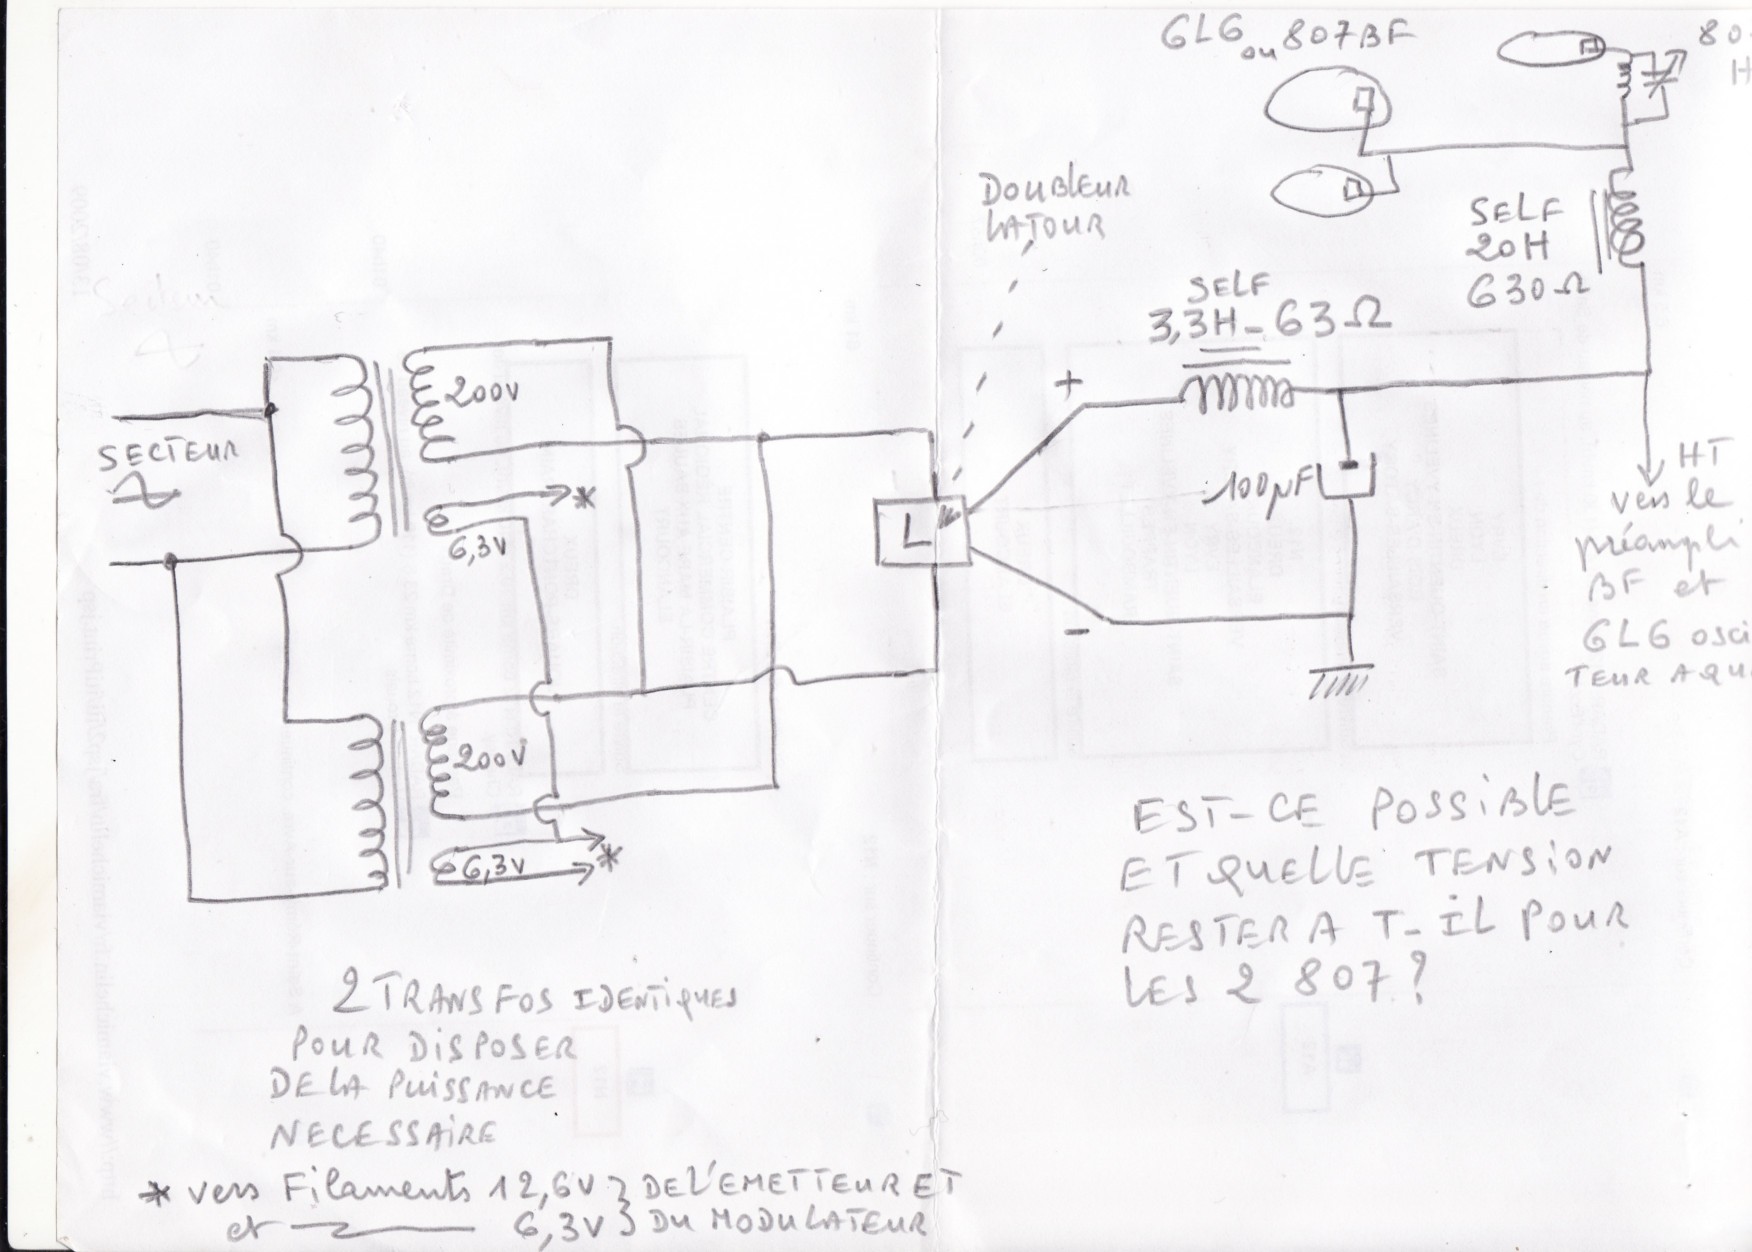 6L6 ou 807 BF
80
H
DOUBLEUR
LATOUR
SELF
20H
630Ω
SELF
3,3H - 63Ω
200V
+
SECTEUR
*
6,3V
100µF
L
HT
vers le
préampli
BF et
6L6 osci
TEUR A QU
-
200V
6,3V
*
EST-CE POSSIBLE
ET QUELLE TENSION
RESTERA T-IL POUR
LES 2 807?
2 TRANSFOS IDENTIQUES
POUR DISPOSER
DE LA PUISSANCE
NECESSAIRE
* vers Filaments 12,6V } DE L'EMETTEUR ET
et 6,3V } DU MODULATEUR